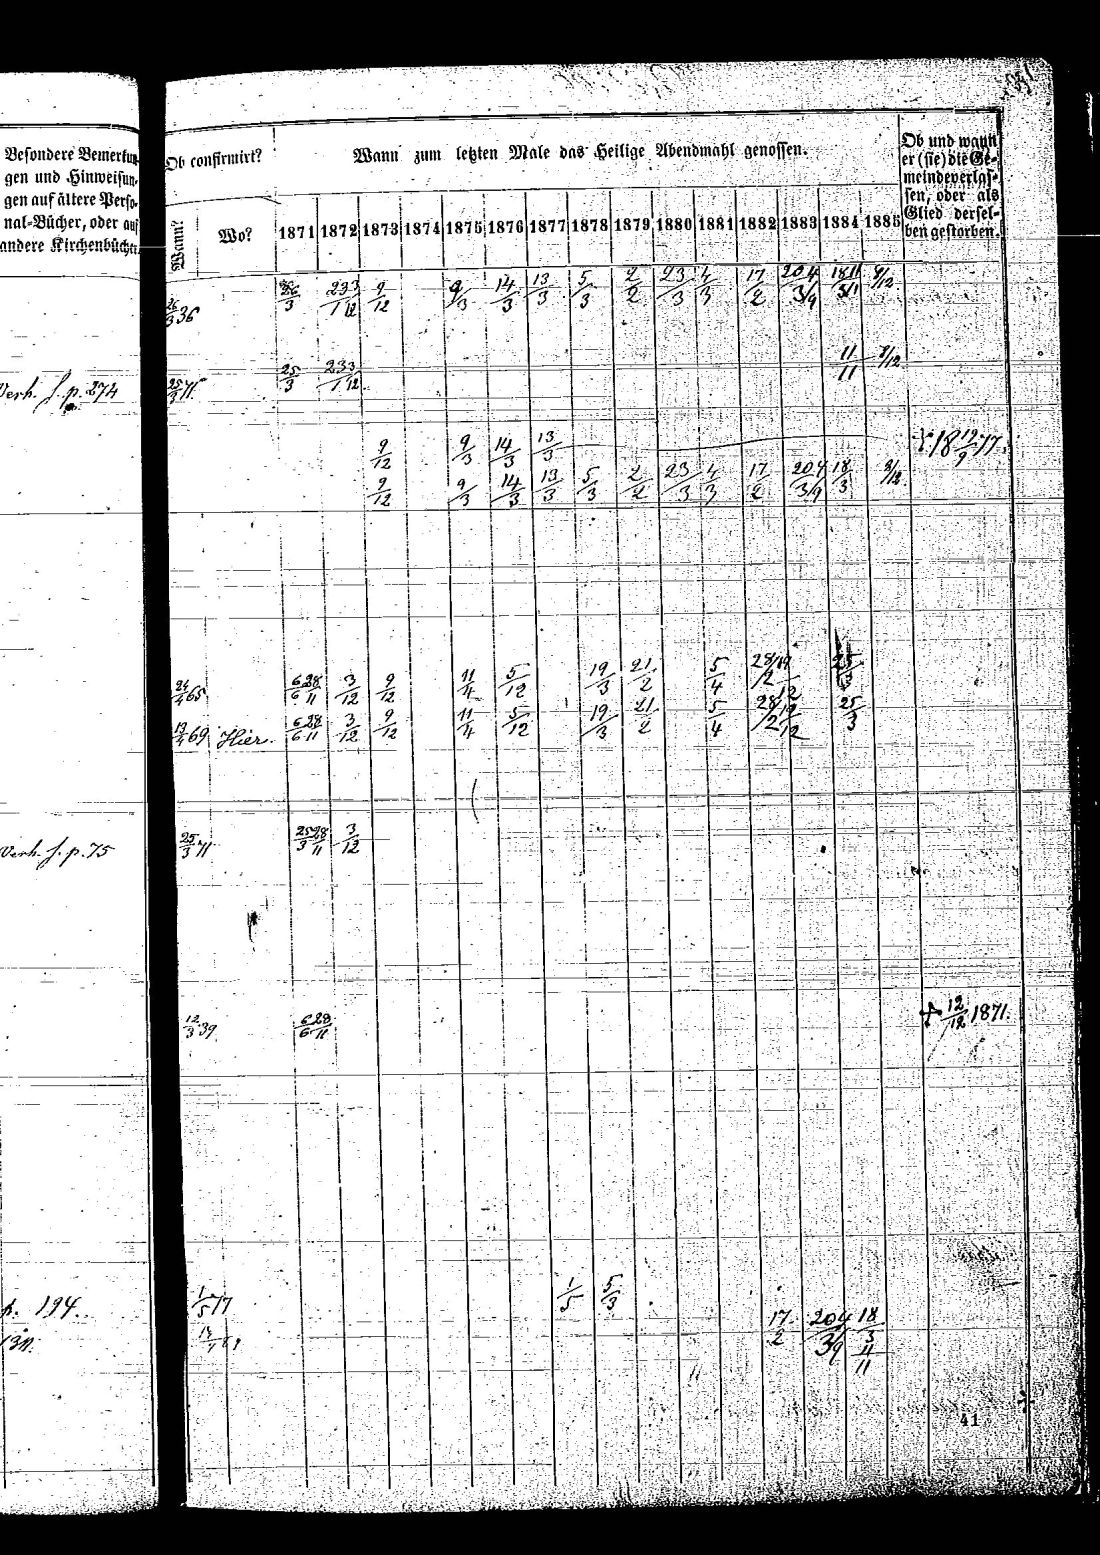 Besondere Bemerkun-
gen und Hinweisun-
gen auf ältere Perso-
nal-Bücher, oder auf
andere Kirchenbücher.
Ob confirmirt?
Wann?
Wo?
Wann zum letzten Male das Heilige Abendmahl genossen.
1871 1872 1873 1874 1875 1876 1877 1878 1879 1880 1881 1882 1883 1884 1885
Ob und wann
er (sie) die Ge-
meinde verlas-
sen, oder als
Glied dersel-
ben gestorben.
26/3 36 26/3 23 3/1 12 9/12 9/3 14/3 13/3 5/3 2/2 23/3 4/3 17/2 20 4/3 9 18 11/3 11 9/12
Verh. f. p. 274 25/3 71 25/3 23 3/1 12 11/11 9/12
9/12 9/3 14/3 13/3 18 12/9 77.
9/12 9/3 14/3 13/3 5/3 2/2 23/3 4/3 17/2 20 4/3 9 18/3 9/12
24/4 65 6 28/6 11 3/12 9/12 11/4 5/12 19/3 21/2 5/4 28/2 17/12 25/3
69 Hier. 6 28/6 11 3/12 9/12 11/4 5/12 19/3 21/2 5/4 28/2 12/12 25/3
Verh. f. p. 75 25/3 71 25 28/3 11 3/12
12/3 39 6 28/6 11 † 12/12 1871.
p. 194. 1/5 77 1/5 5/3
17/2 20 4/3 9 18/3 11/11
41